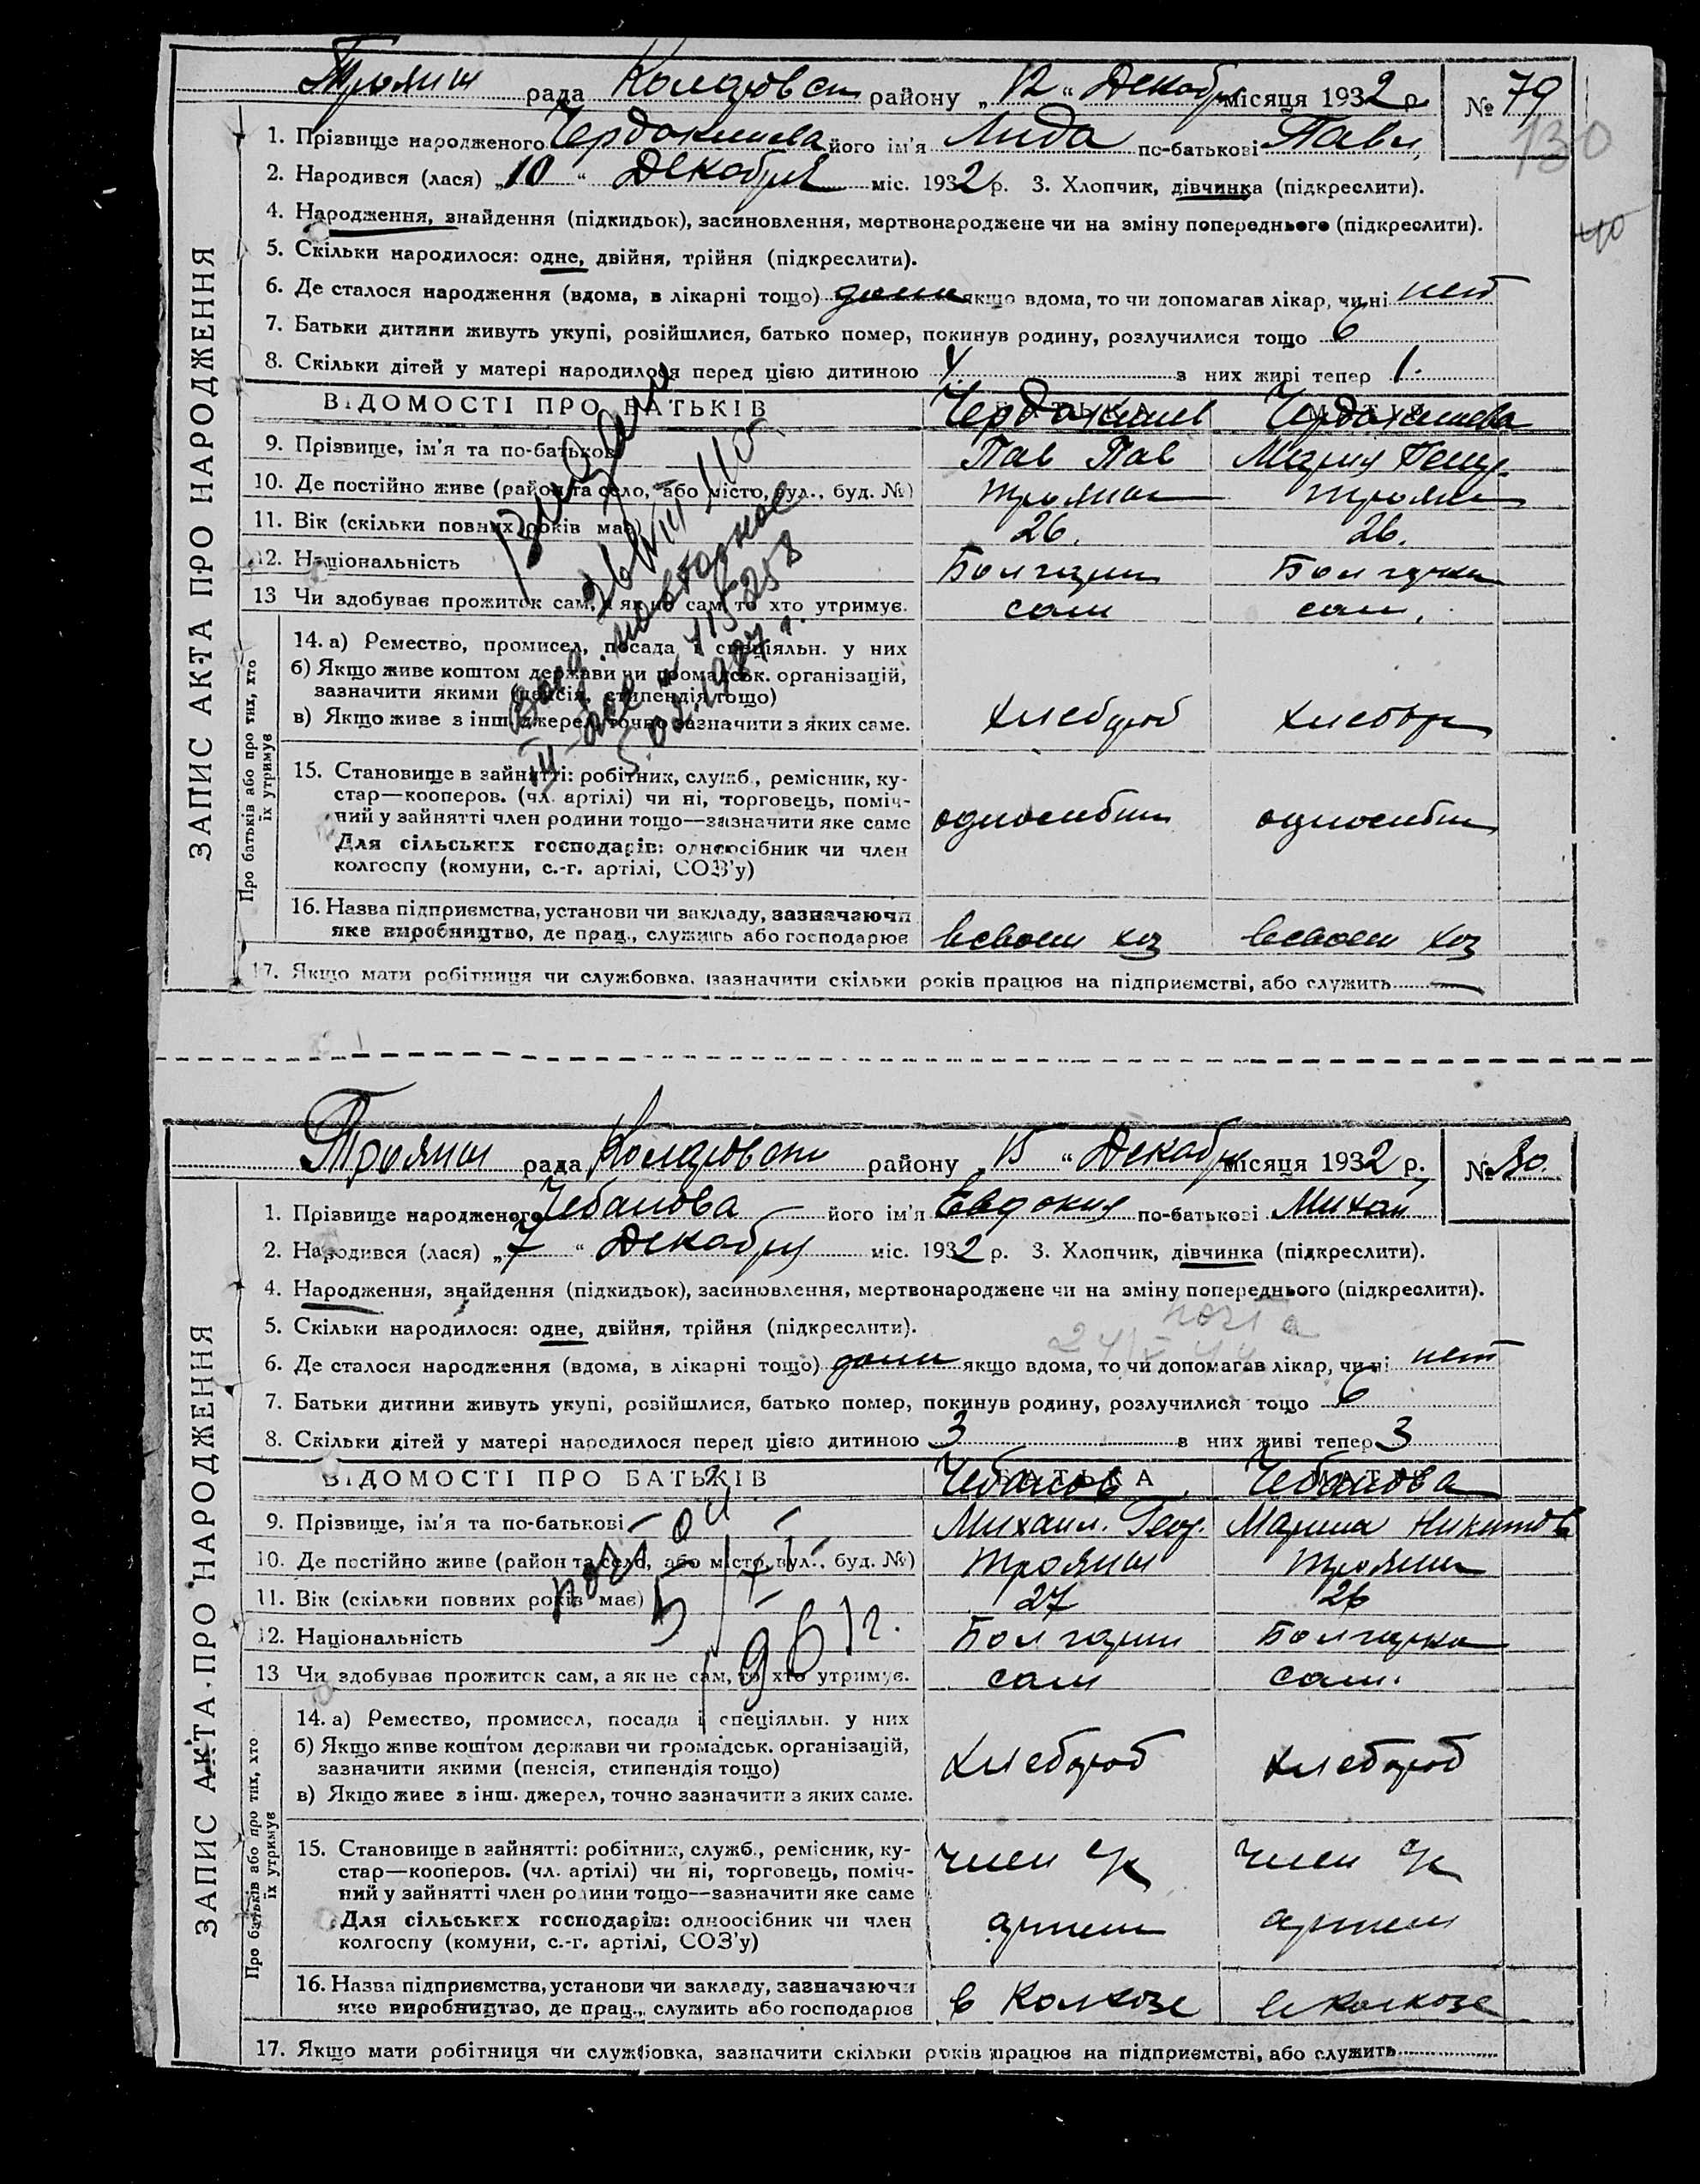 Трояни рада Коларовск району „12“ Декабр місяця 1932 р. № 79
130
40
ЗАПИС АКТА ПРО НАРОДЖЕННЯ
1. Прізвище народженого Чердакииева його ім'я Лида по-батькові Павл
2. Народився (лася) „10“ Декабря міс. 1932 р. 3. Хлопчик, дівчинка (підкреслити).
4. Народження, знайдення (підкидьок), засиновлення, мертвонароджене чи на зміну попереднього (підкреслити).
5. Скільки народилося: одне, двійня, трійня (підкреслити).
6. Де сталося народження (вдома, в лікарні тощо) дома якщо вдома, то чи допомагав лікар, чи ні нет
7. Батьки дитини живуть укупі, розійшлися, батько помер, покинув родину, розлучилися тощо
8. Скільки дітей у матері народилося перед цією дитиною в них живі тепер 1.
ВІДОМОСТІ ПРО БАТЬКІВ БАТЬКА МАТИ
9. Прізвище, ім'я та по-батькові Пав Пав Мария
10. Де постійно живе (район та село, або місто, вул., буд. №) Трояни Трояни
11. Вік (скільки повних років має) 26. 26.
12. Національність Болгарин Болгарка
13 Чи здобуває прожиток сам, а як не сам, то хто утримує. сам сам.
Про батьків або про тих, хто їх утримує
14. а) Ремество, промисел, посада і спеціяльн. у них
б) Якщо живе коштом держави чи громадськ. організацій,
зазначити якими (пенсія, стипендія тощо)
в) Якщо живе з інш. джерел, точно зазначити з яких саме. хлебороб хлебор
15. Становище в зайнятті: робітник, служб., ремісник, ку-
стар—кооперов. (чл. артілі) чи ні, торговець, поміч-
ний у зайнятті член родини тощо—зазначити яке саме
Для сільських господарів: одноосібник чи член
колгоспу (комуни, с.-г. артілі, СОЗ'у)
16. Назва підприємства, установи чи закладу, зазначаючи
яке виробництво, де прац., служить або господарює в своем хоз в своем хоз
17. Якщо мати робітниця чи службовка, зазначити скільки років працює на підприємстві, або служить
Трояни рада Коларовск району „15“ Декабр місяця 1932 р. № 80.
ЗАПИС АКТА ПРО НАРОДЖЕННЯ
1. Прізвище народженого Чебанова його ім'я Евдокия по-батькові Михай
2. Народився (лася) „7“ Декабря міс. 1932 р. 3. Хлопчик, дівчинка (підкреслити).
4. Народження, знайдення (підкидьок), засиновлення, мертвонароджене чи на зміну попереднього (підкреслити).
5. Скільки народилося: одне, двійня, трійня (підкреслити).
6. Де сталося народження (вдома, в лікарні тощо) дома якщо вдома, то чи допомагав лікар, чи ні нет
7. Батьки дитини живуть укупі, розійшлися, батько помер, покинув родину, розлучилися тощо
8. Скільки дітей у матері народилося перед цією дитиною 3 в них живі тепер 3
ВІДОМОСТІ ПРО БАТЬКІВ БАТЬКА МАТИ
Чебанов Чебанова
9. Прізвище, ім'я та по-батькові Михаил. Геор. Марина Никитов
10. Де постійно живе (район та село, або місто, вул., буд. №) Трояни Трояни
11. Вік (скільки повних років має) 27 26
12. Національність Болгарин Болгарка
13 Чи здобуває прожиток сам, а як не сам, то хто утримує. сам сам.
Про батьків або про тих, хто їх утримує
14. а) Ремество, промисел, посада і спеціяльн. у них
б) Якщо живе коштом держави чи громадськ. організацій,
зазначити якими (пенсія, стипендія тощо)
в) Якщо живе з інш. джерел, точно зазначити з яких саме. хлебороб хлебороб
15. Становище в зайнятті: робітник, служб., ремісник, ку- член с/х член с/х
стар—кооперов. (чл. артілі) чи ні, торговець, поміч-
ний у зайнятті член родини тощо—зазначити яке саме
Для сільських господарів: одноосібник чи член артели артели
колгоспу (комуни, с.-г. артілі, СОЗ'у)
16. Назва підприємства, установи чи закладу, зазначаючи
яке виробництво, де прац., служить або господарює в Колхозе в колхозе
17. Якщо мати робітниця чи службовка, зазначити скільки років працює на підприємстві, або служить